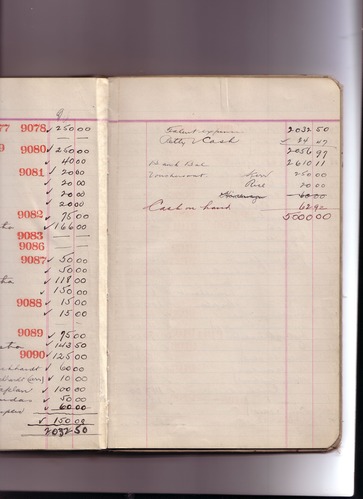 9
77 9078 ✓ 250 00
9 9080 ✓ 250 00
✓ 40 00
9081 ✓ 20 00
✓ 20 00
✓ 20 00
✓ 20 00
9082 ✓ 75 00
✓ 166 00
9083 —
9086 —
9087 ✓ 50 00
✓ 50 00
✓ 118 00
✓ 150 00
9088 ✓ 15 00
✓ 15 00
9089 ✓ 75 00
✓ 143 50
9090 ✓ 125 00
✓ 60 00
✓ 10 00
✓ 100 00
✓ 50 00
✓ 60 00
✓ 150 00
2032 50
Talent expense 2032 50
Petty Cash ✓ 24 47
2056 97
Bank Bal 2610 11
Vouchers out. 250 00
20 00
60 00
Cash on hand 62 92
5000 00